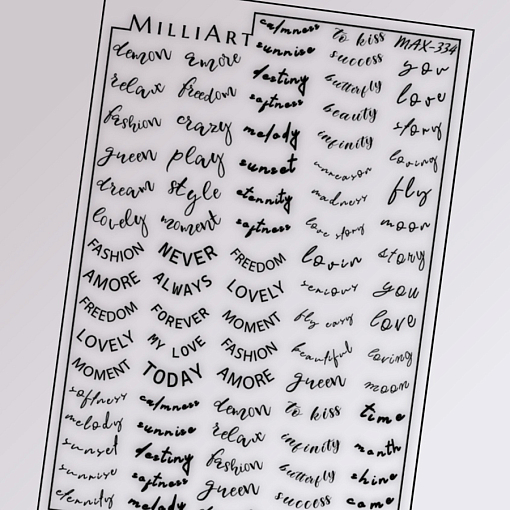 MILLIART calmness to kiss MAX-334
demon amore sunrise success you
relax freedom destiny butterfly love
fashion crazy softness beauty story
queen play melody infinity loving
dream style sunset unreason fly
lovely moment eternity madness moon
FASHION NEVER softness love story story
AMORE ALWAYS FREEDOM lovin you
FREEDOM FOREVER LOVELY seriously love
LOVELY MY LOVE MOMENT fly easy loving
MOMENT TODAY FASHION beautiful moon
softness calmness AMORE queen time
melody sunrise demon to kiss month
sunset destiny relax infinity shine
sunrise softness fashion butterfly came
eternity melody queen success